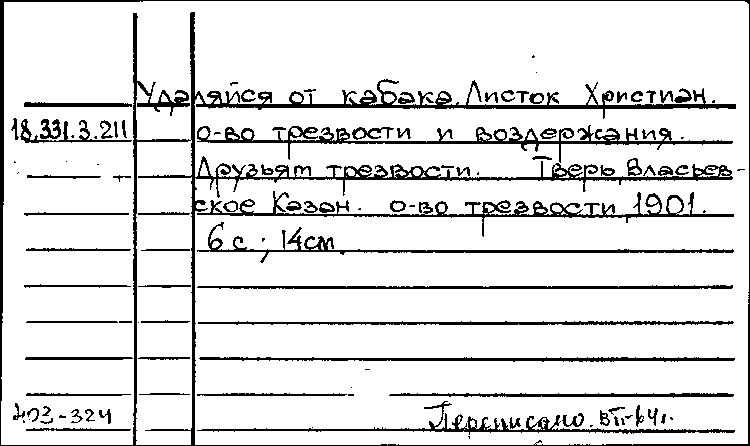 Удаляйся от кабака. Листок Христиан.
18.331.3.211 о-во трезвости и воздержания.
Друзьям трезвости. Тверь, Власьев-
ское Казан. о-во трезвости, 1901.
6 с.; 14см.
403-324 Переписано.